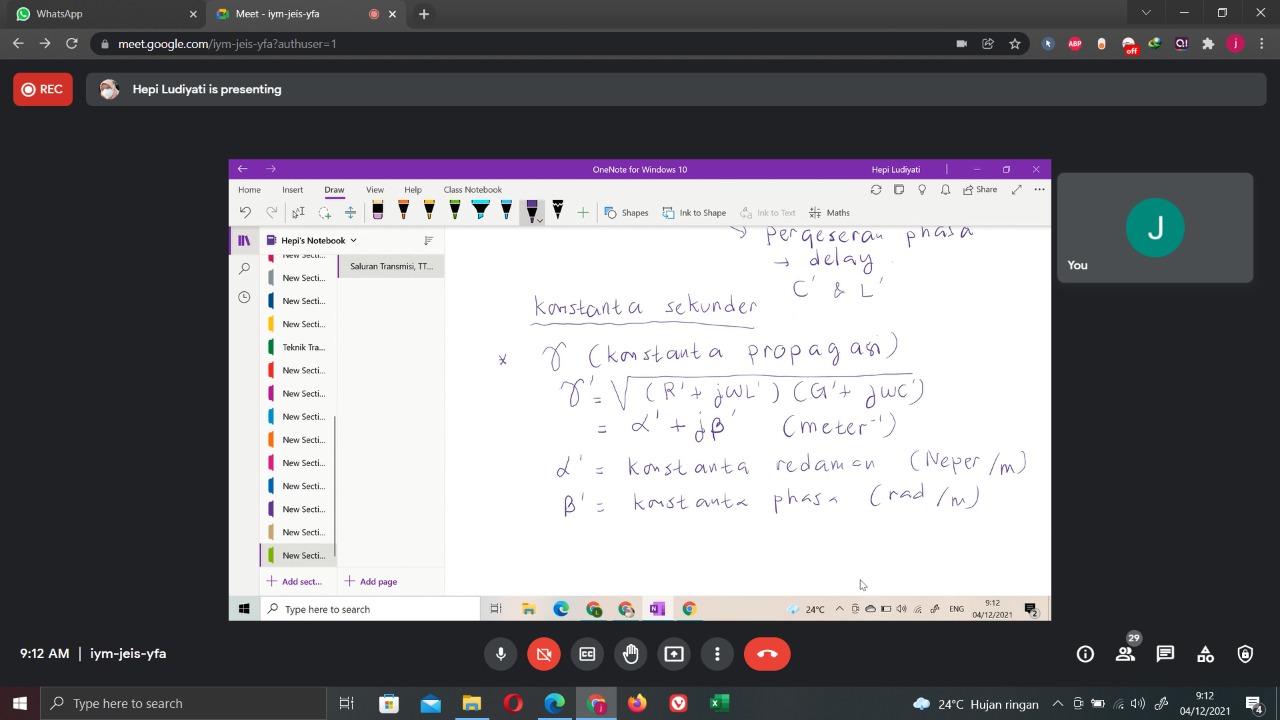 WhatsApp
Meet - iym-jeis-yfa
meet.google.com/iym-jeis-yfa?authuser=1
ABP
off
Q!
j
REC
Hepi Ludiyati is presenting
OneNote for Windows 10
Hepi Ludiyati
Home Insert Draw View Help Class Notebook
Share
Shapes Ink to Shape Ink to Text Maths
Hepi's Notebook
New Secti...
New Secti...
New Secti...
New Secti...
Teknik Tra...
New Secti...
New Secti...
New Secti...
New Secti...
New Secti...
New Secti...
New Secti...
New Secti...
New Secti...
Add sect...
Saluran Transmisi, TT...
Add page
→ pergeseran phasa
→ delay
C' & L'
konstanta sekunder
* γ (konstanta propagasi)
γ' = √(R' + jωL') (G' + jωC')
= α' + jβ' (meter⁻¹)
α' = konstanta redaman (Neper/m)
β' = konstanta phasa (rad/m)
Type here to search
24°C
ENG
9:12
04/12/2021
2
J
You
9:12 AM | iym-jeis-yfa
29
Type here to search
24°C Hujan ringan
9:12
04/12/2021
4